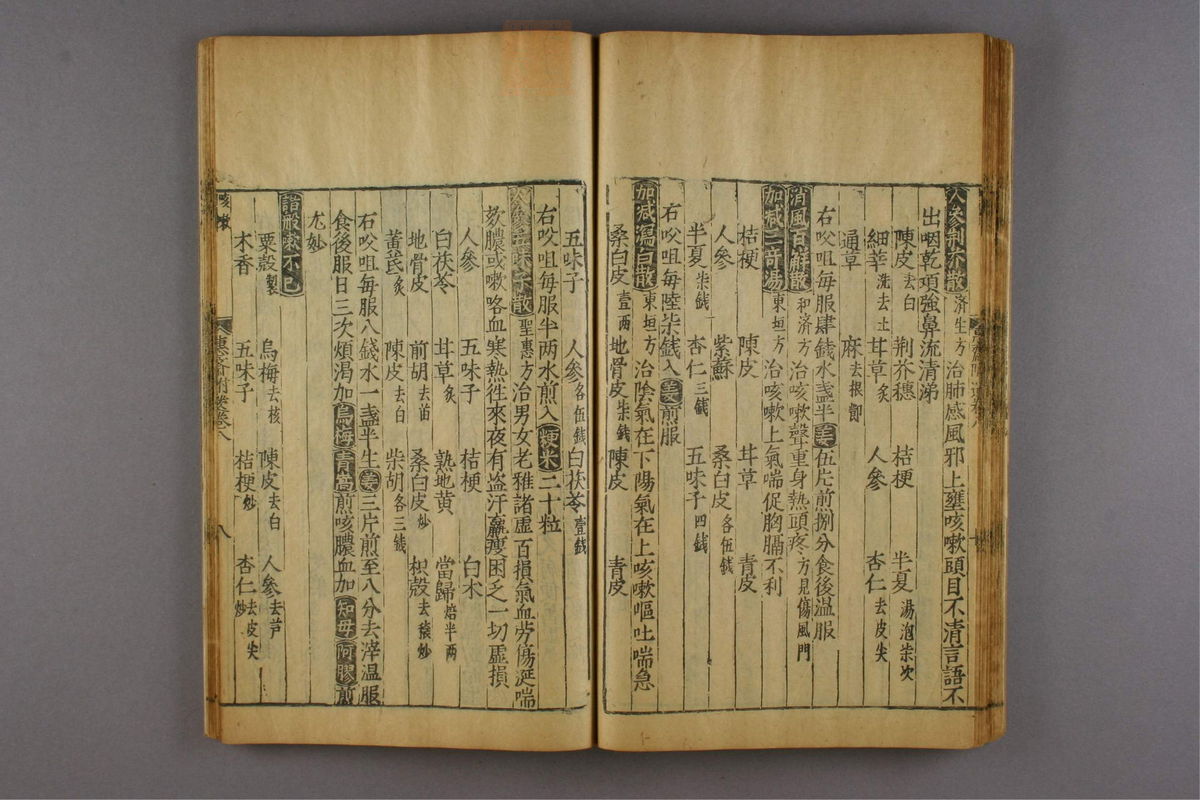 人參荆芥散 済生方 治肺感風邪上壅咳嗽頭目不清言語不
出咽乾項強鼻流清涕
陳皮去白 荆芥穗 桔梗 半夏湯泡柒次
細辛洗去土 甘草炙 人參 杏仁去皮尖
通草 麻去根節
右㕮咀每服肆錢水盞半姜伍片煎捌分食後温服
消風百解散 和済方 治咳嗽聲重身熱頭疼方見傷風門
加减二竒湯 東垣方 治咳嗽上氣喘促胸膈不利
桔梗 陳皮 甘草 青皮
人參 紫蘇 桑白皮各伍錢
半夏柒錢 杏仁三錢 五味子四錢
右㕮咀每陸柒錢入姜煎服
加减瀉白散 東垣方 治陰氣在下陽氣在上咳嗽嘔吐喘急
桑白皮壹两 地骨皮柒錢 陳皮 青皮
五味子 人參各伍錢 白茯苓壹錢
右㕮咀每服半两水煎入粳米二十粒
人參五味子散 聖惠方 治男女老雅諸虛百損氣血劳傷涎喘
欬膿或嗽咯血寒熱徃來夜有盗汗羸瘦困乏一切虛損
人參 五味子 桔梗 白术
白茯苓 甘草炙 熟地黄 當歸焙半两
地骨皮 前胡去苗 桑白皮炒 枳殻去穰炒
黄芪炙 陳皮去白 柴胡各三錢
右㕮咀每服八錢水一盏半生姜三片煎至八分去滓温服
食後服日三次煩渴加烏梅青蒿煎咳膿血加知母阿膠煎
尤妙
諸般嗽不已
粟殻製 烏梅去核 陳皮去白 人參去芦
木香 五味子 桔梗炒 杏仁去皮尖炒
咳嗽
八